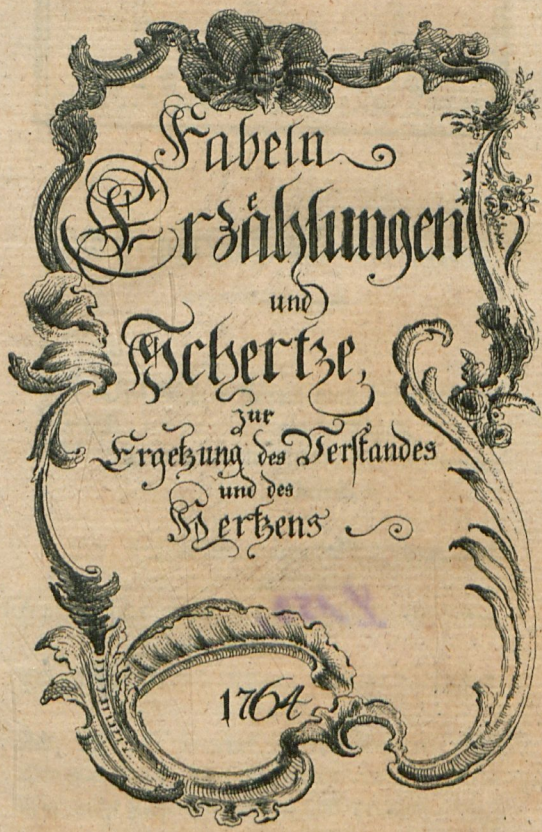 Fabeln
Erzählungen
und
Schertze,
zur
Ergetzung des Verstandes
und des
Hertzens
1764